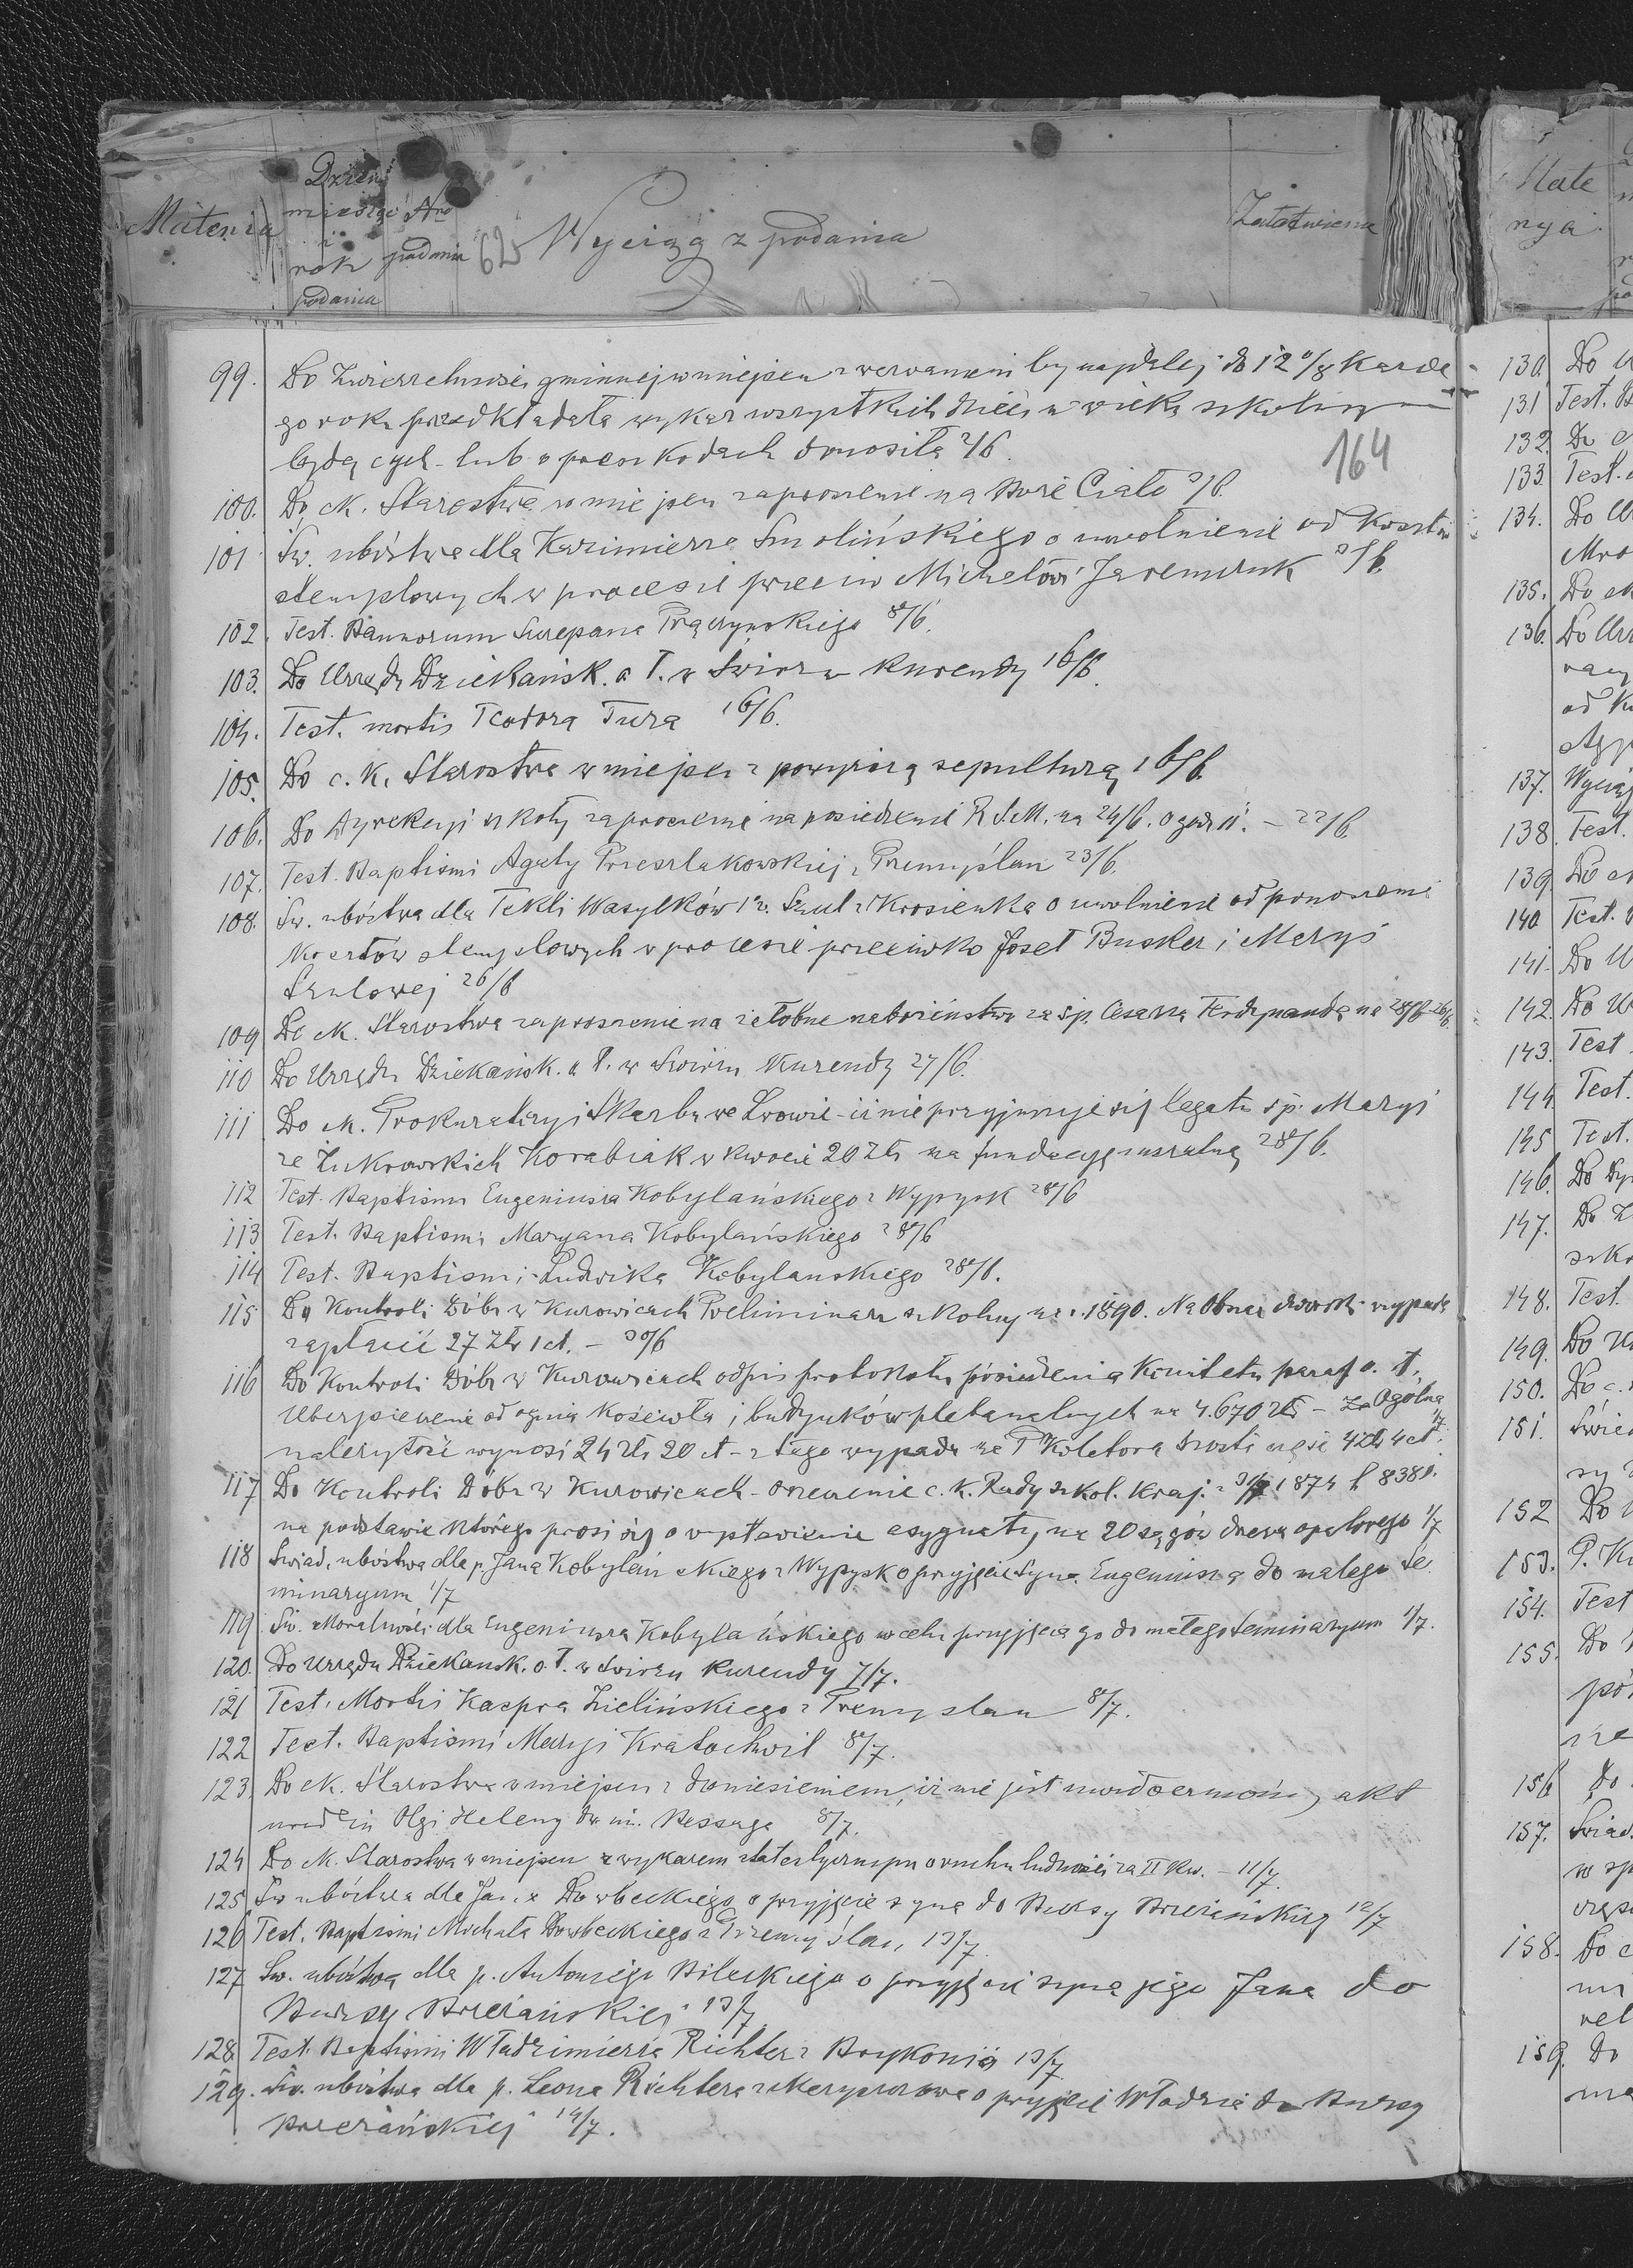 Materia
Dzień
miesiąc
i
rok
podania
Nro
podania
62
Wyciąg z podania
Załatwienie
164
99. Do Zwierzchności gminnej w miejscu z wezwaniem by najdalej do 12/8 każde
go roku przedkładała wykaz wszystkich dzieci w wieku szkolnym
będących lub o przeszkodach donosiła 2/6.
100. Do ck. Starostwa w miejscu zaproszenie na Boże Ciało 3/6.
101 Św. ubóstwa dla Kazimierza Smolińskiego o uwolnienie od kosztów
stemplowych w procesie przeciw Michałowi Jaremczuk 3/6.
102. Test. Bannorum Szczepana Prączyńskiego 8/6.
103. Do Urzędu Dziekańsk. o. ł. w Świrzu kurendy 16/6.
104. Test. mortis Teodora Tura 16/6.
105. Do c. k. Starostwa w miejscu z powyższą sepulturą 16/6.
106. Do Dyrekcyi szkoły zaproszenie na posiedzenie R.S.M. na 24/6. o godz 11. – 22/6.
107. Test. Baptismi Agaty Przeszlakowskiej z Przemyślan 23/6.
108. Św. ubóstwa dla Tekli Wasylków 1º Szul z Krosienka o uwolnienie od ponoszenia
kosztów stemplowych w procesie przeciwko Josel Busker i Maryi
Szulowej 26/6
109 Do ck. Starostwa zaproszenie na żałobne nabożeństwo za śp. Cesarza Ferdynanda na 28/6 – 26/6.
110 Do Urzędu Dziekańsk. o. ł. w Świrzu kurendy 27/6.
111 Do ck. Prokuratoryi Skarbu we Lwowie – iż nie przyjmuje się legatu śp. Maryi
ze Żukrowskich Korabiak w kwocie 20 Zł na fundacyę mszalną 28/6.
112 Test. Baptismi Eugeniusza Kobylańskiego z Wypysk 28/6
113 Test. Baptismi Maryana Kobylańskiego 28/6
114 Test. Baptismi Ludwika Kobylanskiego 28/6.
115 Do Kontroli Dóbr w Kurowicach Preliminarz szkolny na r. 1890. Na Obszar dworski wypada
zapłacić 27 Zł 1 ct. – 30/6
116 Do Kontroli Dóbr w Kurowicach odpis protokołu posiedzenia Komitetu paraf o. ł.
Ubezpieczenie od ognia Kościoła i budynków plebanalnych na 4.670 Zł – Ogólna
należytość wynosi 24 Zł 20 ct – z tego wypada na P Kolatora szósta część 4 Zł 4 ct 1/7.
117 Do Kontroli Dóbr w Kurowicach – orzeczenie c. k. Rady szkol. Kraj. z 1874 l 8381.
na podstawie którego prosi się o wystawienie asygnaty na 20 sągów drzewa opałowego 1/7
118 Świad. ubóstwa dla p. Jana Kobylańskiego z Wypysk o przyjęcie syna Eugeniusza do małego Se
minaryum 1/7
119 Św. Moralności dla Eugeniusza Kobylańskiego w celu przyjęcia go do małego Seminaryum 1/7.
120. Do Urzędu Dziekansk. o. ł. w Świrzu kurendy 7/7.
121 Test. Mortis Kacpra Zielińskiego z Przemyslan 8/7.
122 Test. Baptismi Maryi Kratochwil 8/7.
123. Do ck. Starostwa w miejscu z doniesieniem, iż nie jest uwidoczniony akt
urodzin Olgi Heleny dw. im. Bessaga 8/7.
124 Do ck. Starostwa w miejscu z wykazem statystycznym o ruchu ludności za II kw. – 11/7.
125 Św ubóstwa dla Jana Dowbeckiego o przyjęcie syna do Bursy Brzeżańskiej 12/7
126 Test. Baptismi Michała Dowbeckiego z Przemyślan 13/7.
127 Św. ubóstwa dla p. Antoniego Bileckiego o przyjęcie syna jego Jana do
Bursy Brzeżańskiej 13/7.
128. Test. Baptismi Władzimierza Richter z Brykonia 13/7
129. Św. ubóstwa dla p. Leona Richtera o przyjęcie Władzia do Bursy
Brzeżańskiej 14/7.
Mate
rya
130. Do
131 Test.
132. Do
133. Test.
134. Do
135. Do
136. Do
od
137. Wyciąg
138. Test.
139. Do
140. Test.
141. Do
142. Do
143. Test
144. Test.
145 Test.
146. Do
147. Do
148. Test.
149. Do
150. Do c.
151.
152 Do
153. P.
154. Test
155. Do
156 Do
157. Świad.
158. Do
159. Do